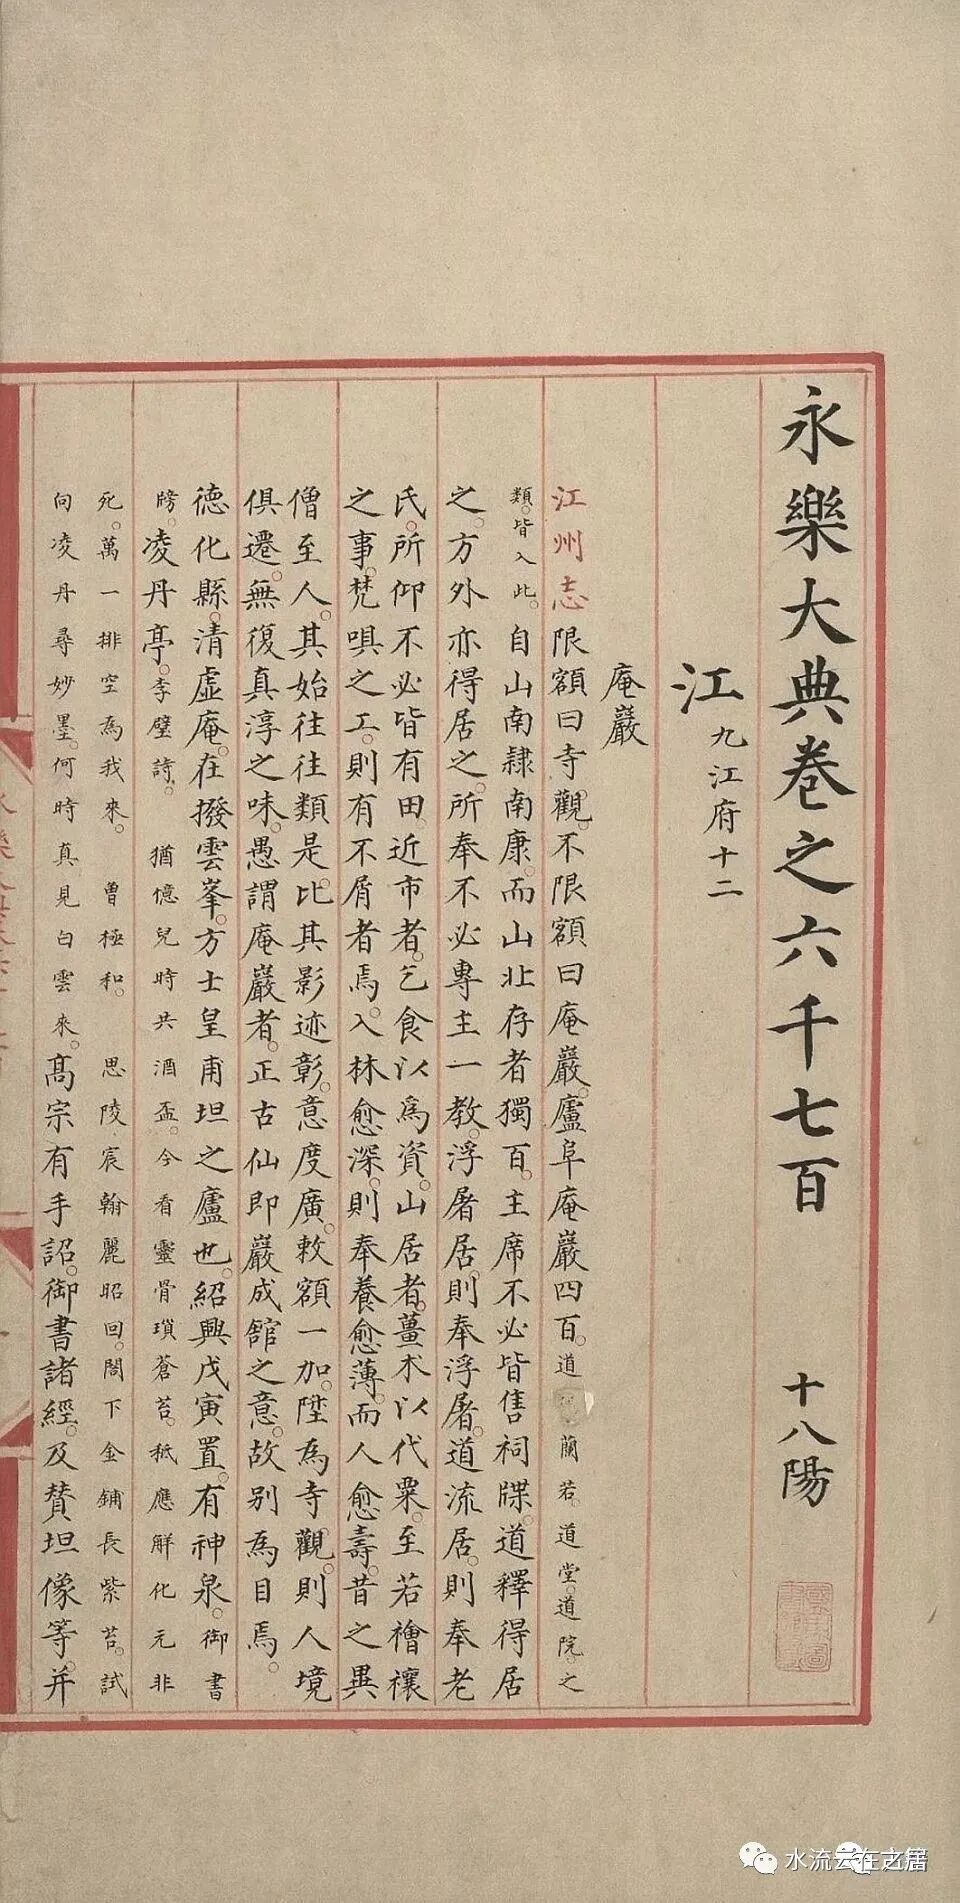 永樂大典卷之六千七百 十八陽
江 九江府十二
庵巖
江州志限額曰寺觀。不限額曰庵巖。廬阜庵巖四百。道 蘭若。道堂。道院。之
類。皆入此。自山南隸南康。而山北存者獨百。主席不必皆售祠牒。道釋得居
之。方外亦得居之。所奉不必專主一教。浮屠居。則奉浮屠。道流居。則奉老
氏。所仰不必皆有田。近市者。乞食以爲資。山居者。薑朮以代粟。至若禬禳
之事。梵唄之工。則有不屑者焉。入林愈深。則奉養愈薄。而人愈壽。昔之異
僧至人。其始往往類是。比其影迹彰。意度廣。敕額一加。陞為寺觀。則人境
俱遷。無復真淳之味。愚謂庵巖者。正古仙即巖成館之意。故别為目焉。
德化縣。清虛庵。在撥雲峯。方士皇甫坦之廬也。紹興戊寅置。有神泉。御書
牓。凌丹亭。李壁詩。 猶憶兒時共酒盃。今看靈骨瑣蒼苔。秪應解化元非
死。萬一排空為我來。 曾極和。 思陵宸翰麗昭回。閤下金鋪長紫苔。試
向凌丹尋妙墨。何時真見白雲來。髙宗有手詔。御書諸經。及贊坦像等。并
水流云在之居